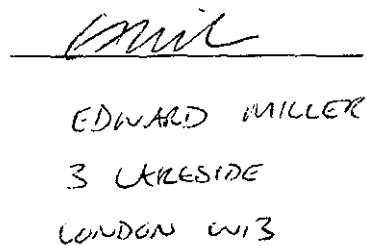 EDWARD MILLER
3 LAKESIDE
LONDON W13